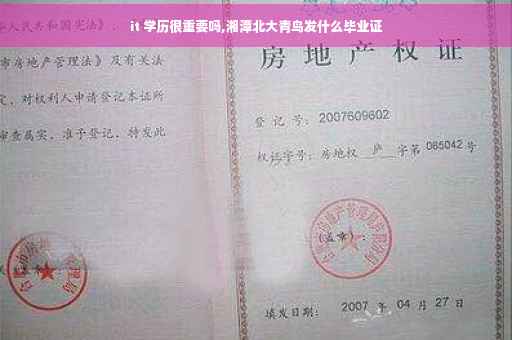 it 学历很重要吗,湘潭北大青鸟发什么毕业证
华人民共和国宪法》、
市房地产管理法》及有关法
定，对权利人申请登记本证所
审查属实，准予登记，特发此
房地产权证
登记号：2007609602
权证字号：房地权 庐 字第 085042 号
(盖章)：
填发日期：2007 年 04 月 27 日